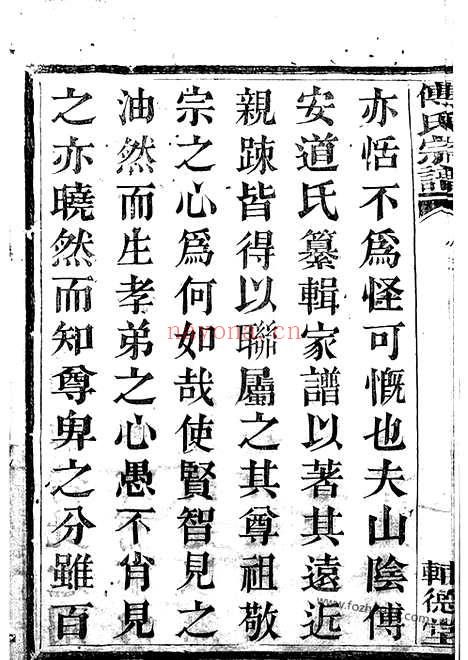 傅氏宗譜
輔德堂
亦恬不爲怪可慨也夫山陰傅
安道氏纂輯家譜以著其遠近
親踈皆得以聯屬之其尊祖敬
宗之心爲何如哉使賢智見之
油然而生孝弟之心愚不肖見
之亦曉然而知尊卑之分雖百
nayong.cn